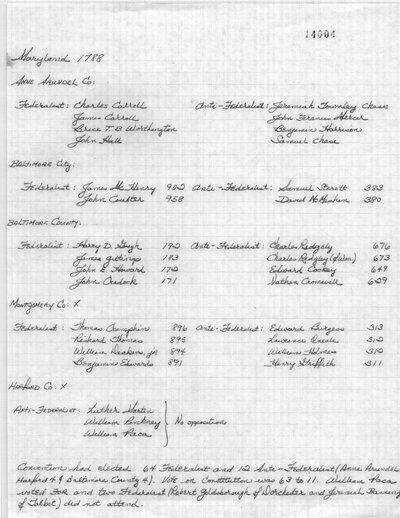 14004
Maryland 1788
ANNE ARUNDEL Co:
Federalist: Charles Carroll Ante-Federalist: Jeremiah Townley Chase
James Carroll John Francis Mercer
Brice T.B Worthington Benjamin Harrison
John Hall Samuel Chase
BALTIMORE City:
Federalist: James Mc Henry 962 Ante-Federalist: Samuel Sterett 383
John Coulter 958 David McMechen 380
BALTIMORE COUNTY:
Federalist: Harry D. Gough 192 Ante-Federalist: Charles Ridgely 676
James Gittings 183 Charles Ridgley (of Wm) 673
John E. Howard 172 Edward Cockey 649
John Cradock 171 Nathan Cromwell 629
Montgomery Co: X
Federalist: Thomas Cramphin 896 Ante-Federalist: Edward Burgess 313
Richard Thomas 895 Lawrence Oneale 312
William Deakins, jr 894 William Holmes 312
Benjamin Edwards 891 Henry Griffith 311
HARFORD Co: X
Anti-Federalist: Luther Martin
William Pinkney No opposition
William Paca
Convention had elected 64 Federalist and 12 Ante-Federalist (Anne Arundel
Harford 4 & Baltimore County 4). Vote on Constitution was 63 to 11. William Paca
voted FOR and two Federalist (Robert Goldsborough of Dorchester and Jeremiah Banning
of Talbot) did not attend.